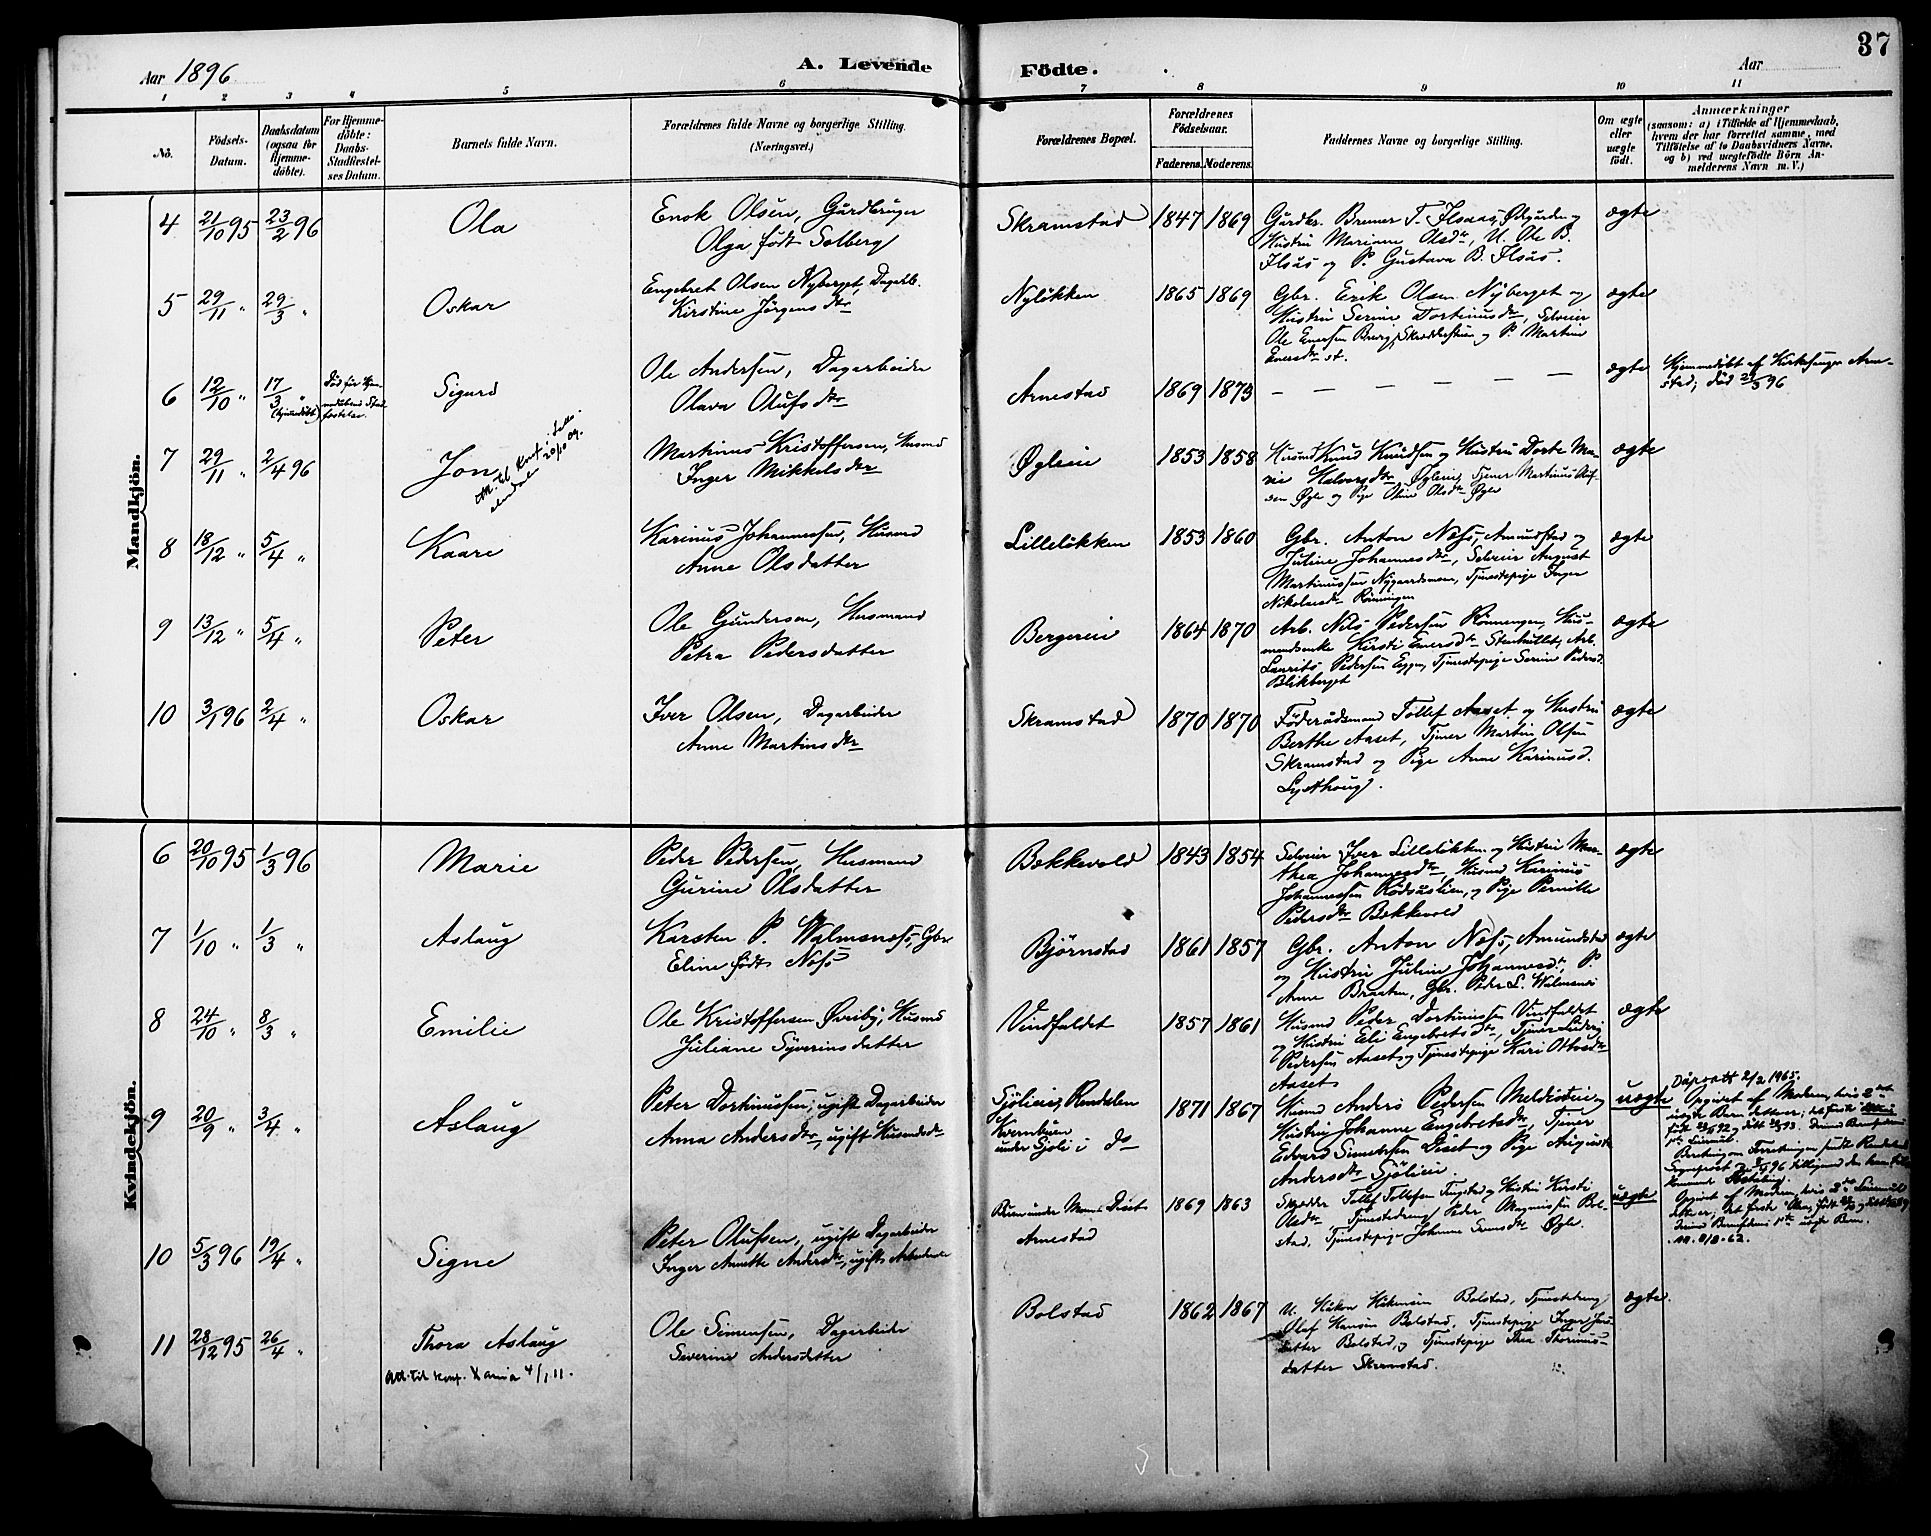 Aar 1896
A. Levende
Födte.
Aar
37
1 2 3 4 5 6 7 8 9 10 11
No.
Födsels-
Datum.
Daabsdatum
(ogsaa for
Hjemme-
döbte).
For Hjemme-
döbte:
Daabs-
Stadfæstel-
ses Datum.
Barnets fulde Navn.
Forældrenes fulde Navne og borgerlige Stilling.
(Næringsvei.)
Forældrenes Bopæl.
Forældrenes
Födselsaar.
Faderens. Moderens.
Faddernes Navne og borgerlige Stilling.
Om ægte
eller
uægte
födt.
Anmærkninger
(saasom: a) i Tilfælde af Hjemmedaab,
hvem der har forrettet samme, med
Tilföielse af to Daabsvidners Navne,
og b) ved uægtefödte Börn An-
melderens Navn m. V.)
Mandkjön.
4 21/10 95 23/2 96 Ola
Enok Olsen, Gårdbruger
Olga født Solberg
Skramstad 1847 1869
Gårdbr. Bremer T. Ilsaas, Ødegården og
Hustru Mariane Olsdtr, U. Ole B.
Ilsås og P. Gustava B. Ilsås.
ægte
5 29/11 " 29/3 " Oskar
Engebret Olsen Nyberget, Dagarb.
Kirstine Jörgensdtr
Nylökken 1865 1869
Gbr. Erik Olsen Nyberget og
Hustru Serine Dortinusdtr, Selveier
Ole Enersen Berg, Skræddersvein og P. Martine
Enersdtr st.
ægte
6 12/10 " 17/3 " (hjemmdöbt) Död för Hjem-
medaabens Stad-
fæstelse. Sigurd
Ole Andersen, Dagarbeider
Olava Olufsdtr
Arnestad 1869 1873
— — — — — — —
ægte
Hjemmedöbt af Kirkesanger Arne-
stad; död 21/3 96
7 29/11 " 2/4 96 Jon
Att. til Konf. i Lille-
elvedalen 20/10 09.
Martinus Kristoffersen, Husmd
Inger Mikkelsdtr
Øgleie 1853 1858
Husmd Knud Knudsen og Hustru Dorte Ma-
rie Halvorsdtr Øgleie, Tjener Martinus Oluf-
sen Øgle og Pige Oline Olsdtr Øgle
ægte
8 18/12 " 5/4 " Kaare
Karinus Johannessen, Husmd
Anne Olsdatter
Lillelökken 1853 1860
Gbr. Anton Næss, Amundstad og
Juline Johannesdtr, Selveier August
Martinussen Nygaardsmoen, Tjenestepige Inger
Nikolaisdtr Rönningen
ægte
9 13/12 " 5/4 " Peter
Ole Gundersen, Husmand
Petra Pedersdatter
Bergereie 1864 1870
Arb. Nils Pedersen Rönningen, Hus-
mandsenke Kirsti Enersdtr Stenhullet, Arb.
Laurits Pedersen Eggen, Tjenestepige Serine Pedersd.
Blikberget
ægte
10 3/1 96 2/4 " Oskar
Iver Olsen, Dagarbeider
Anne Martinsdtr
Skramstad 1870 1870
Föderådsmand Tollef Aaset og Hustru
Berthe Aaset, Tjener Martin Olsen
Skramstad og Pige Anne Karinusd.
Lysthoug.
ægte
Kvindekjön.
6 20/10 95 1/3 96 Marie
Peder Pedersen, Husmand
Gurine Olsdatter
Bekkevold 1843 1854
Selveier Iver Lillelökken og Hustru Mar-
thea Johannesdtr, Husmd Karinus
Johannessen Rödsåslien, og Pige Pernille
Pedersdtr Bekkevold
ægte
7 1/10 " 1/3 " Aslaug
Karsten P. Walmsnæss, Gbr
Eline födt Næss
Björnstad 1861 1857
Gbr. Anton Næss, Amundstad
og Hustru Juline Johannesdtr, P.
Anne Braaten, Gbr. Peder L. Walmsnæs
ægte
8 24/10 " 8/3 " Emilie
Ole Kristoffersen Øverby, Husmd
Juliane Syverinsdatter
Vindfaldet 1857 1861
Husmd Peder Dortinussen Vindfaldet
og Hustru Eli Engebretsdtr, Tjener Ludvig
Pedersen Aaset og Tjenestepige Kari Ottosdtr
Aaset
ægte
9 20/9 " 3/4 " Aslaug
Peter Dortinussen, ugift Dagarbeider
Anna Andersdtr, ugift Husmdsdtr
Sjölieie, Rendalen
Kvernbuen
under Sjöli i do
1871 1867
Husmd Anders Pedersen Meldiseie og
Hustru Johanne Engebretsdtr, Tjener
Edvard Simensen Diset og Pige Auguste
Andersdtr Sjölieie.
uægte
Dåpsatt 2/2 1965.
Opgivet af Moderen, hvis 2det
uægte Barn dette er;
10 5/3 96 19/4 " Signe
Peter Olufsen, ugift Dagarbeider
Inger Anette Andersdtr, ugift Arbeiderske
Arnestad
1869 1863
Skrædder Tollef Tollefsen Tangstad og Hustru Kirsti
Olsdtr, Tjenestedreng Peder Magnussen Bol-
stad, Tjenestepige Johanne Simensdtr Øgle.
uægte
Opgivet af Moderen, hvis
11 28/12 95 26/4 " Thora Aslaug
Att. til konf. Xania 4/1.11.
Ole Simensen, Dagarbeider
Severine Andersdatter
Bolstad 1862 1867
U. Håkon Håkensen Bolstad, Tjenestedreng
Olaf Hansen Bolstad, Tjenestepige Inger Jens-
datter Bolstad, og Tjenestepige Thea Thorinus-
datter Skramstad.
ægte.